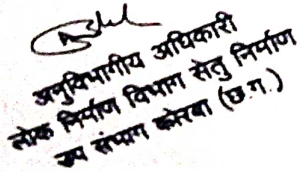 अनुविभागीय अधिकारी
लोक निर्माण विभाग सेतु निर्माण
उप संभाग कोरबा (छ.ग.)